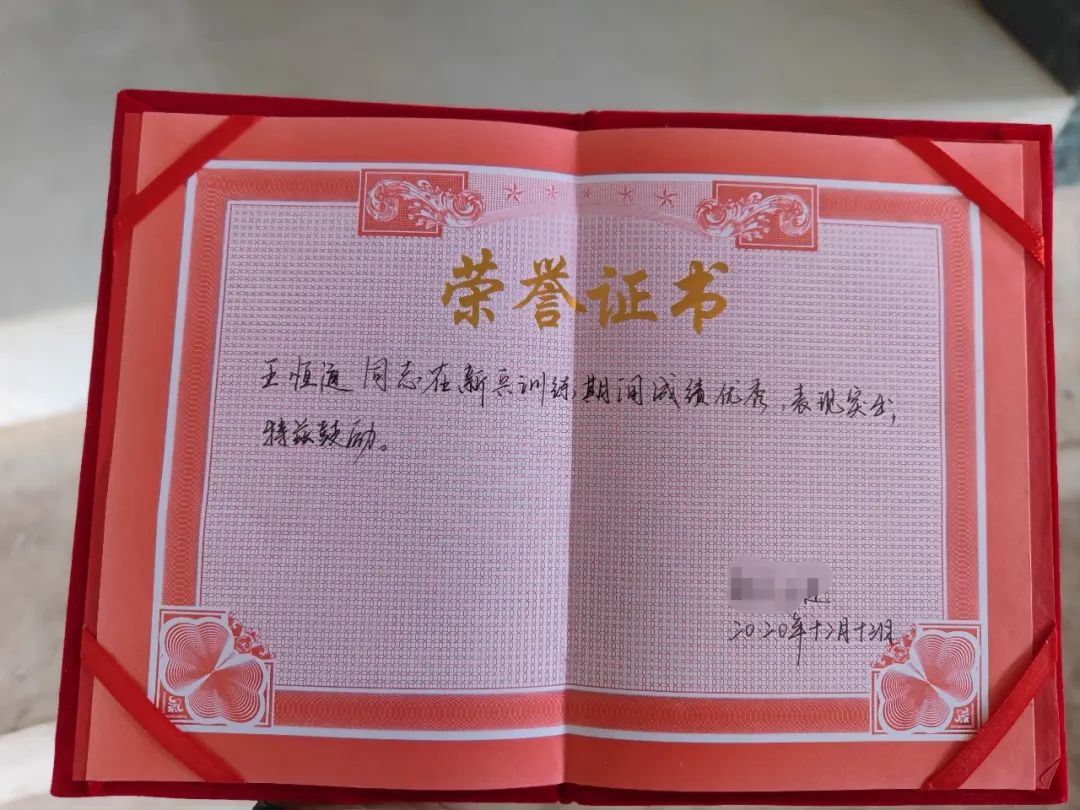 荣誉证书
王恒通 同志在新兵训练期间成绩优秀,表现突出,
特兹鼓励。
2020年十二月十二日